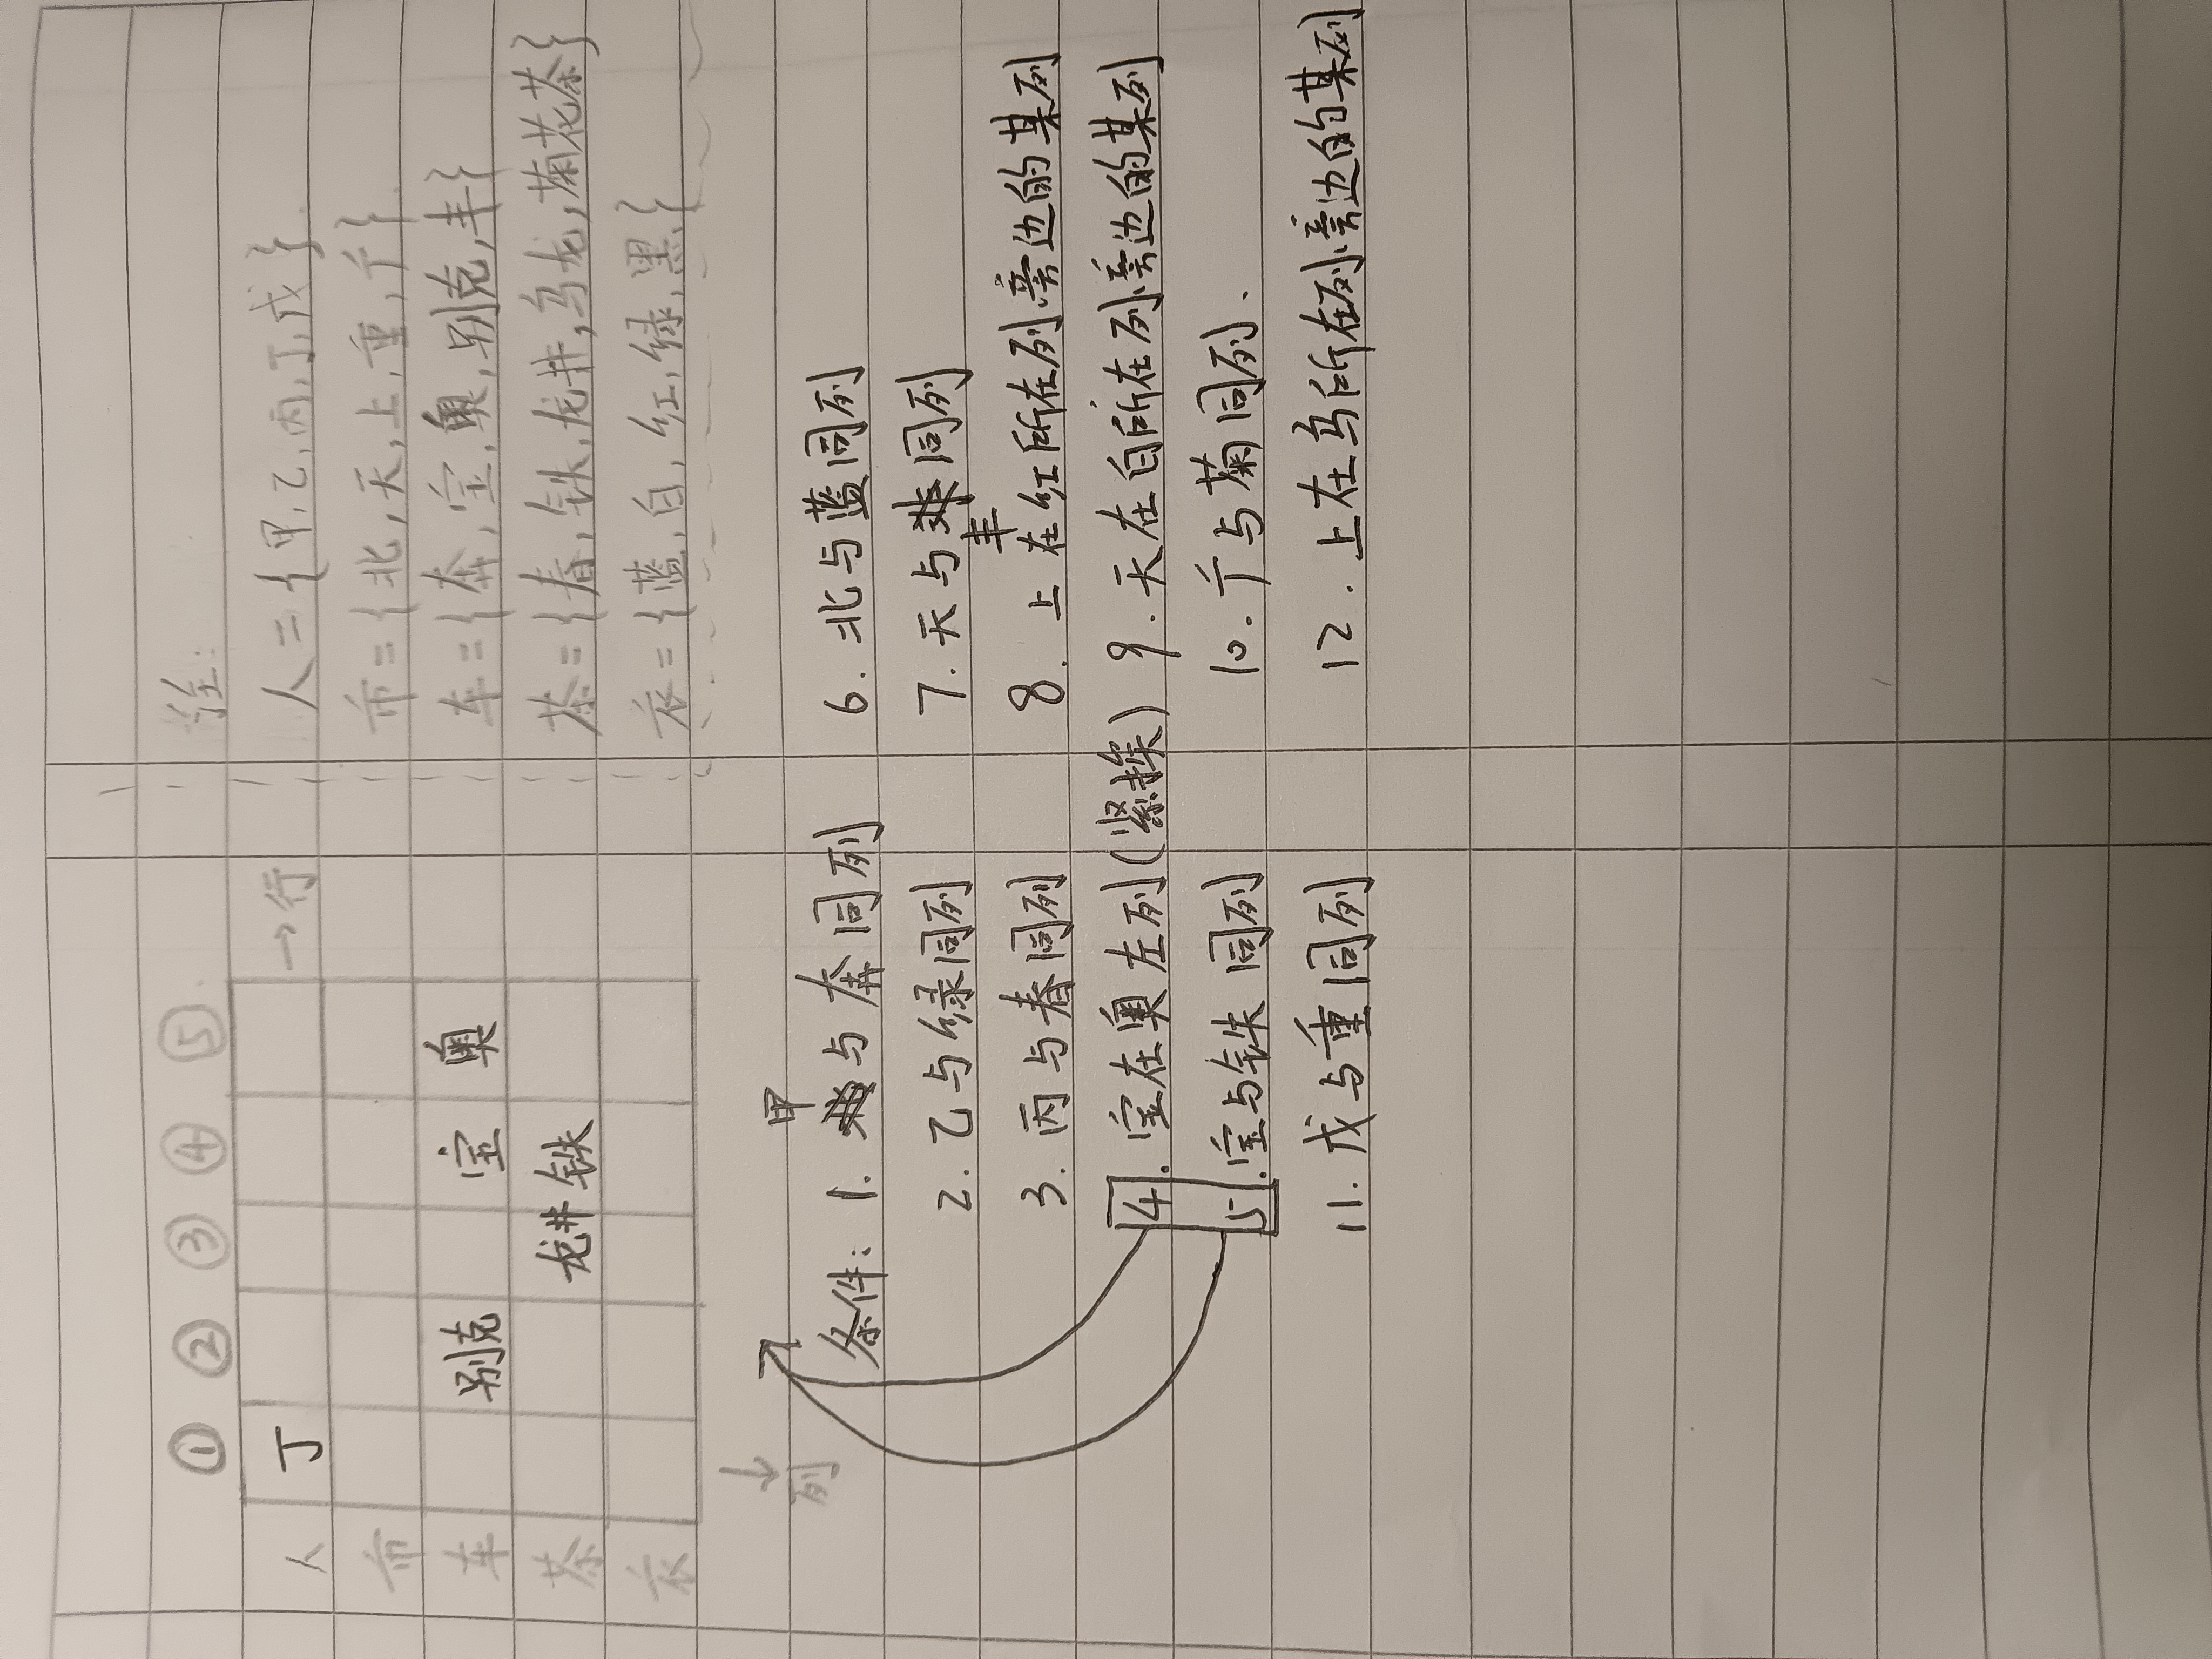 ① ② ③ ④ ⑤
人 丁 →行
市
车 别克 宝 奥
茶 龙井 铁
衣
↓
列
注:
人={甲,乙,丙,丁,戊}
市={北,天,上,重,广}
车={奔,宝,奥,别克,丰}
茶={春,铁,龙井,乌龙,菊花茶}
衣={蓝,白,红,绿,黑}
甲
条件: 1. 与奔同列
2. 乙与绿同列
3. 丙与春同列
4. 宝在奥左列(紧挨)
5. 宝与铁同列
11. 戊与重同列
6. 北与蓝同列
7. 天与丰同列
8. 上在红所在列旁边的某列
9. 天在白所在列旁边的某列
10. 广与菊同列.
12. 上在乌所在列旁边的某列